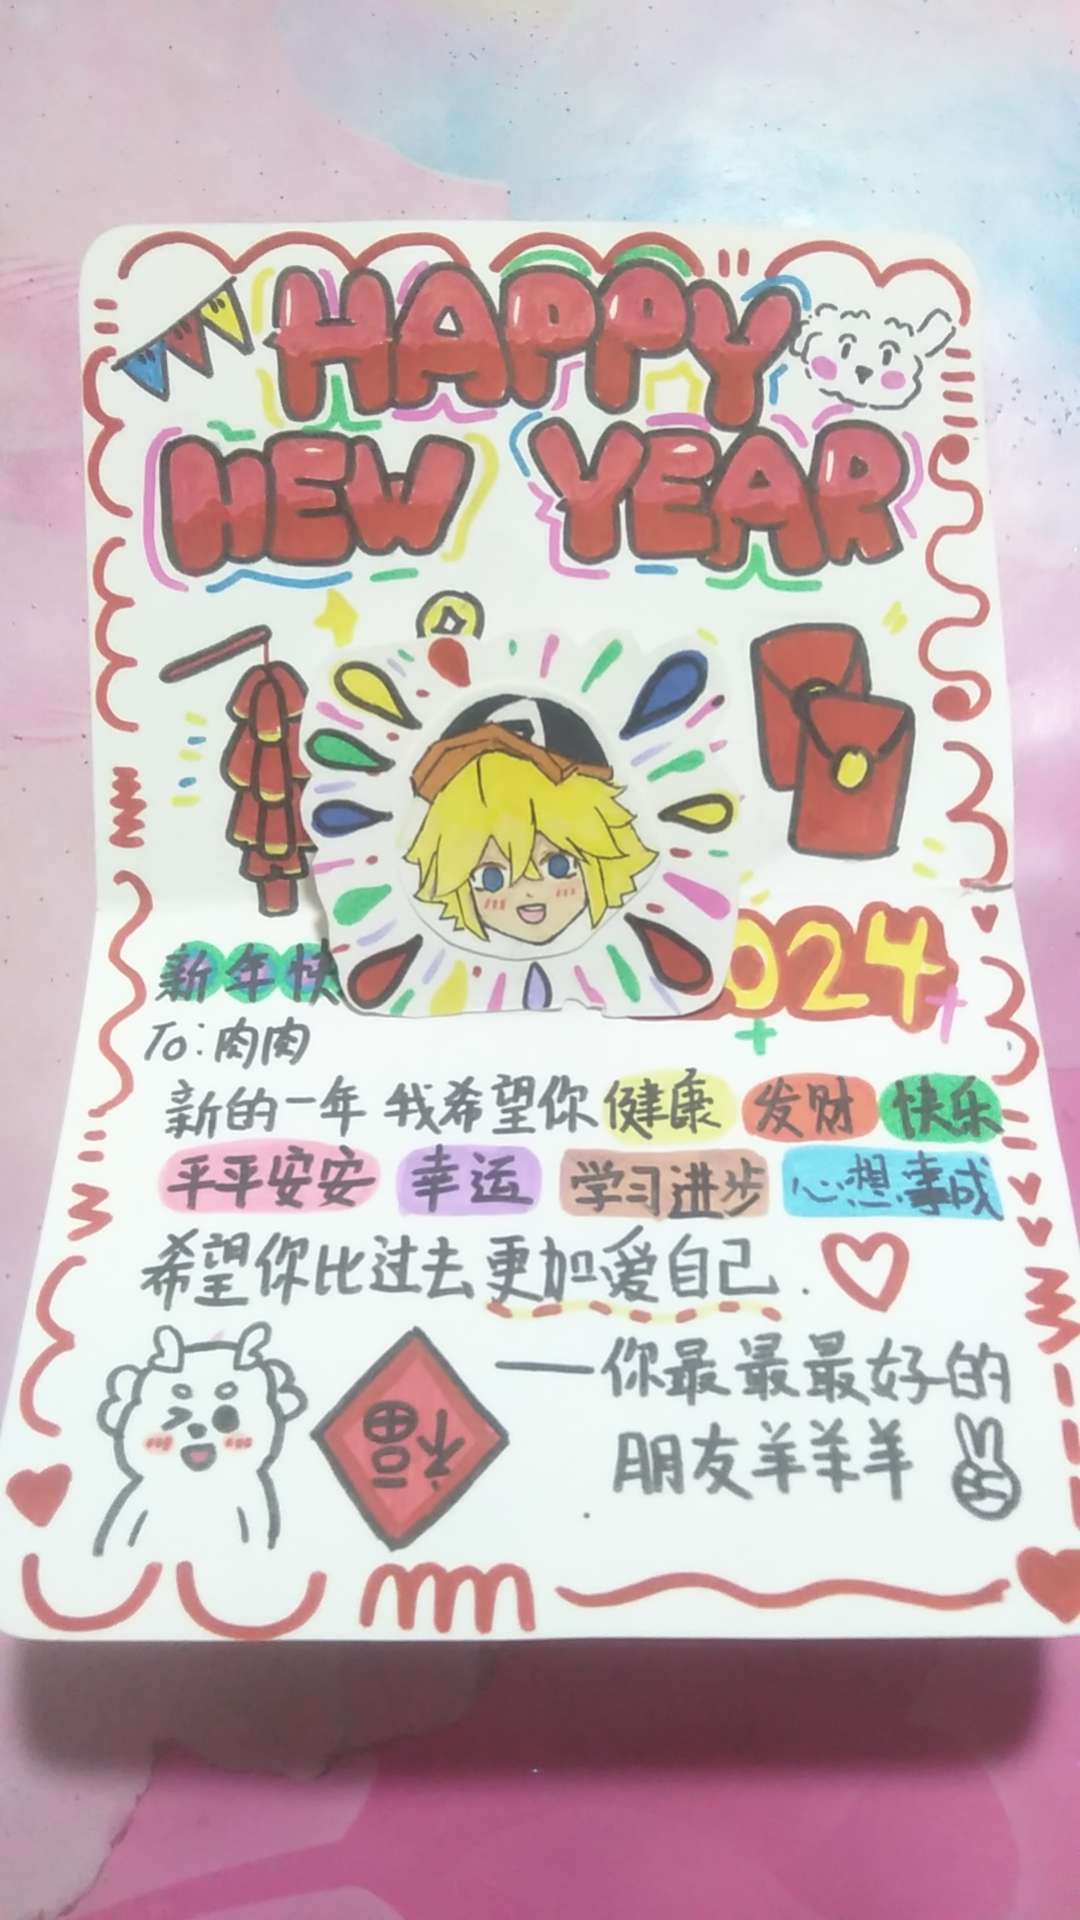 HAPPY
NEW YEAR
新年快
024
To:肉肉
新的一年 我希望你健康 发财 快乐
平平安安 幸运 学习进步 心想事成
希望你比过去更加爱自己.
福
——你最最最好的
朋友羊羊羊